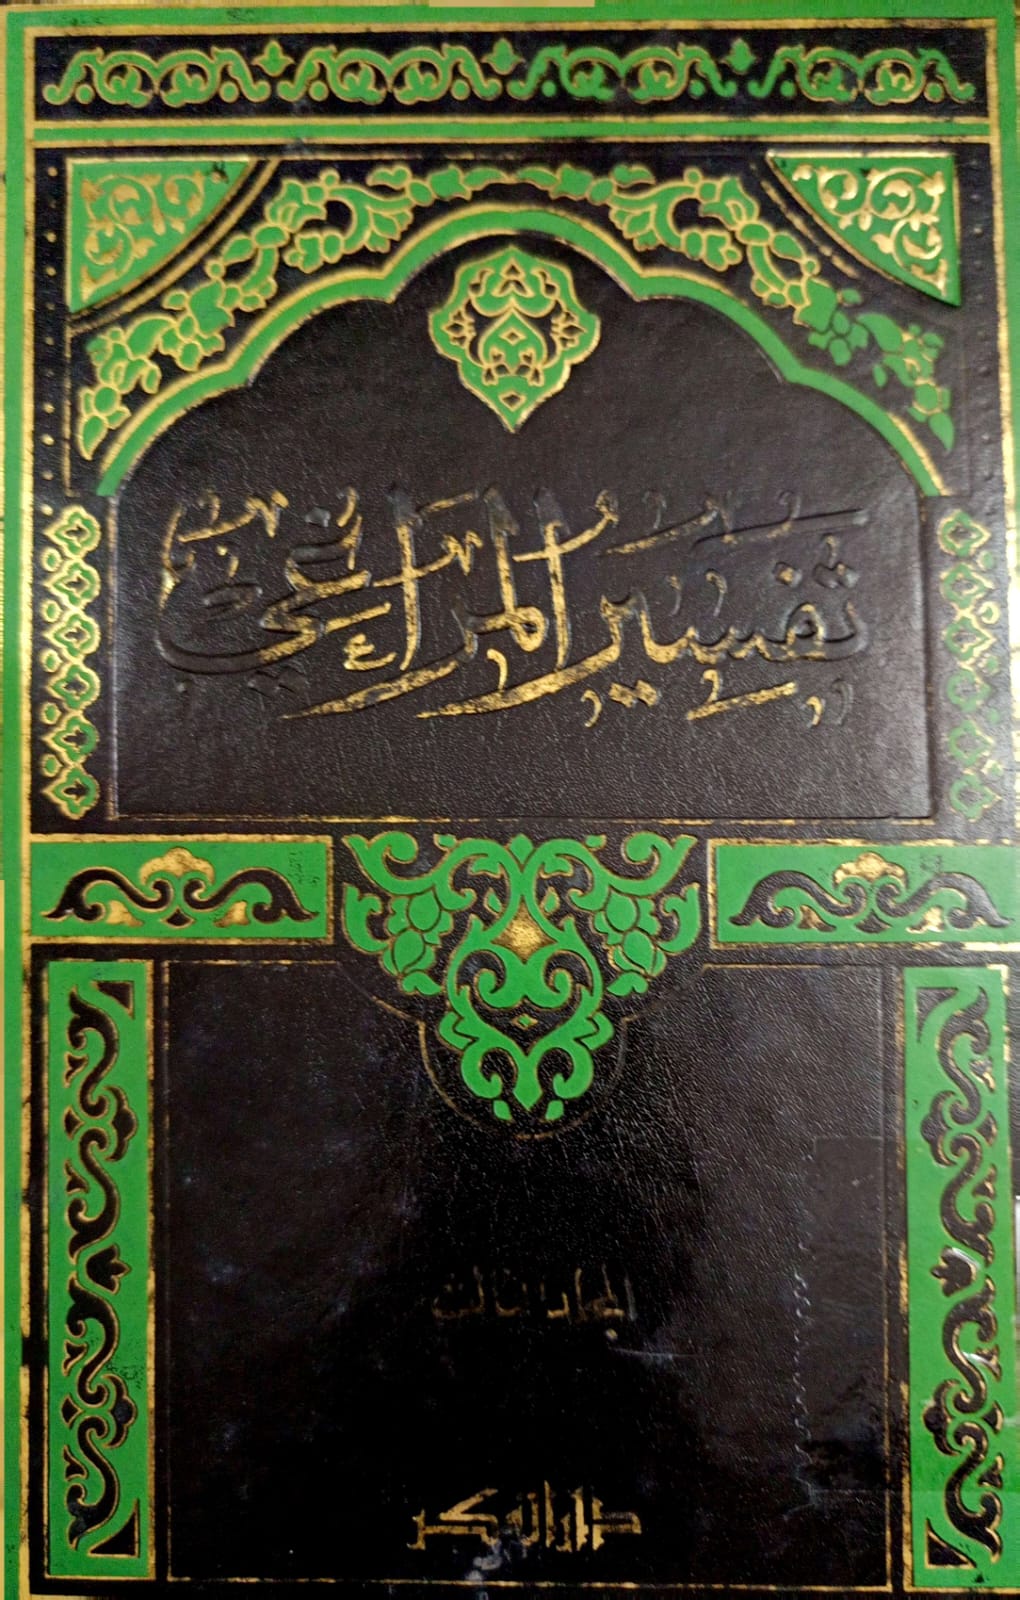 تفسير المراغي
المجلد الثالث
دار الفكر